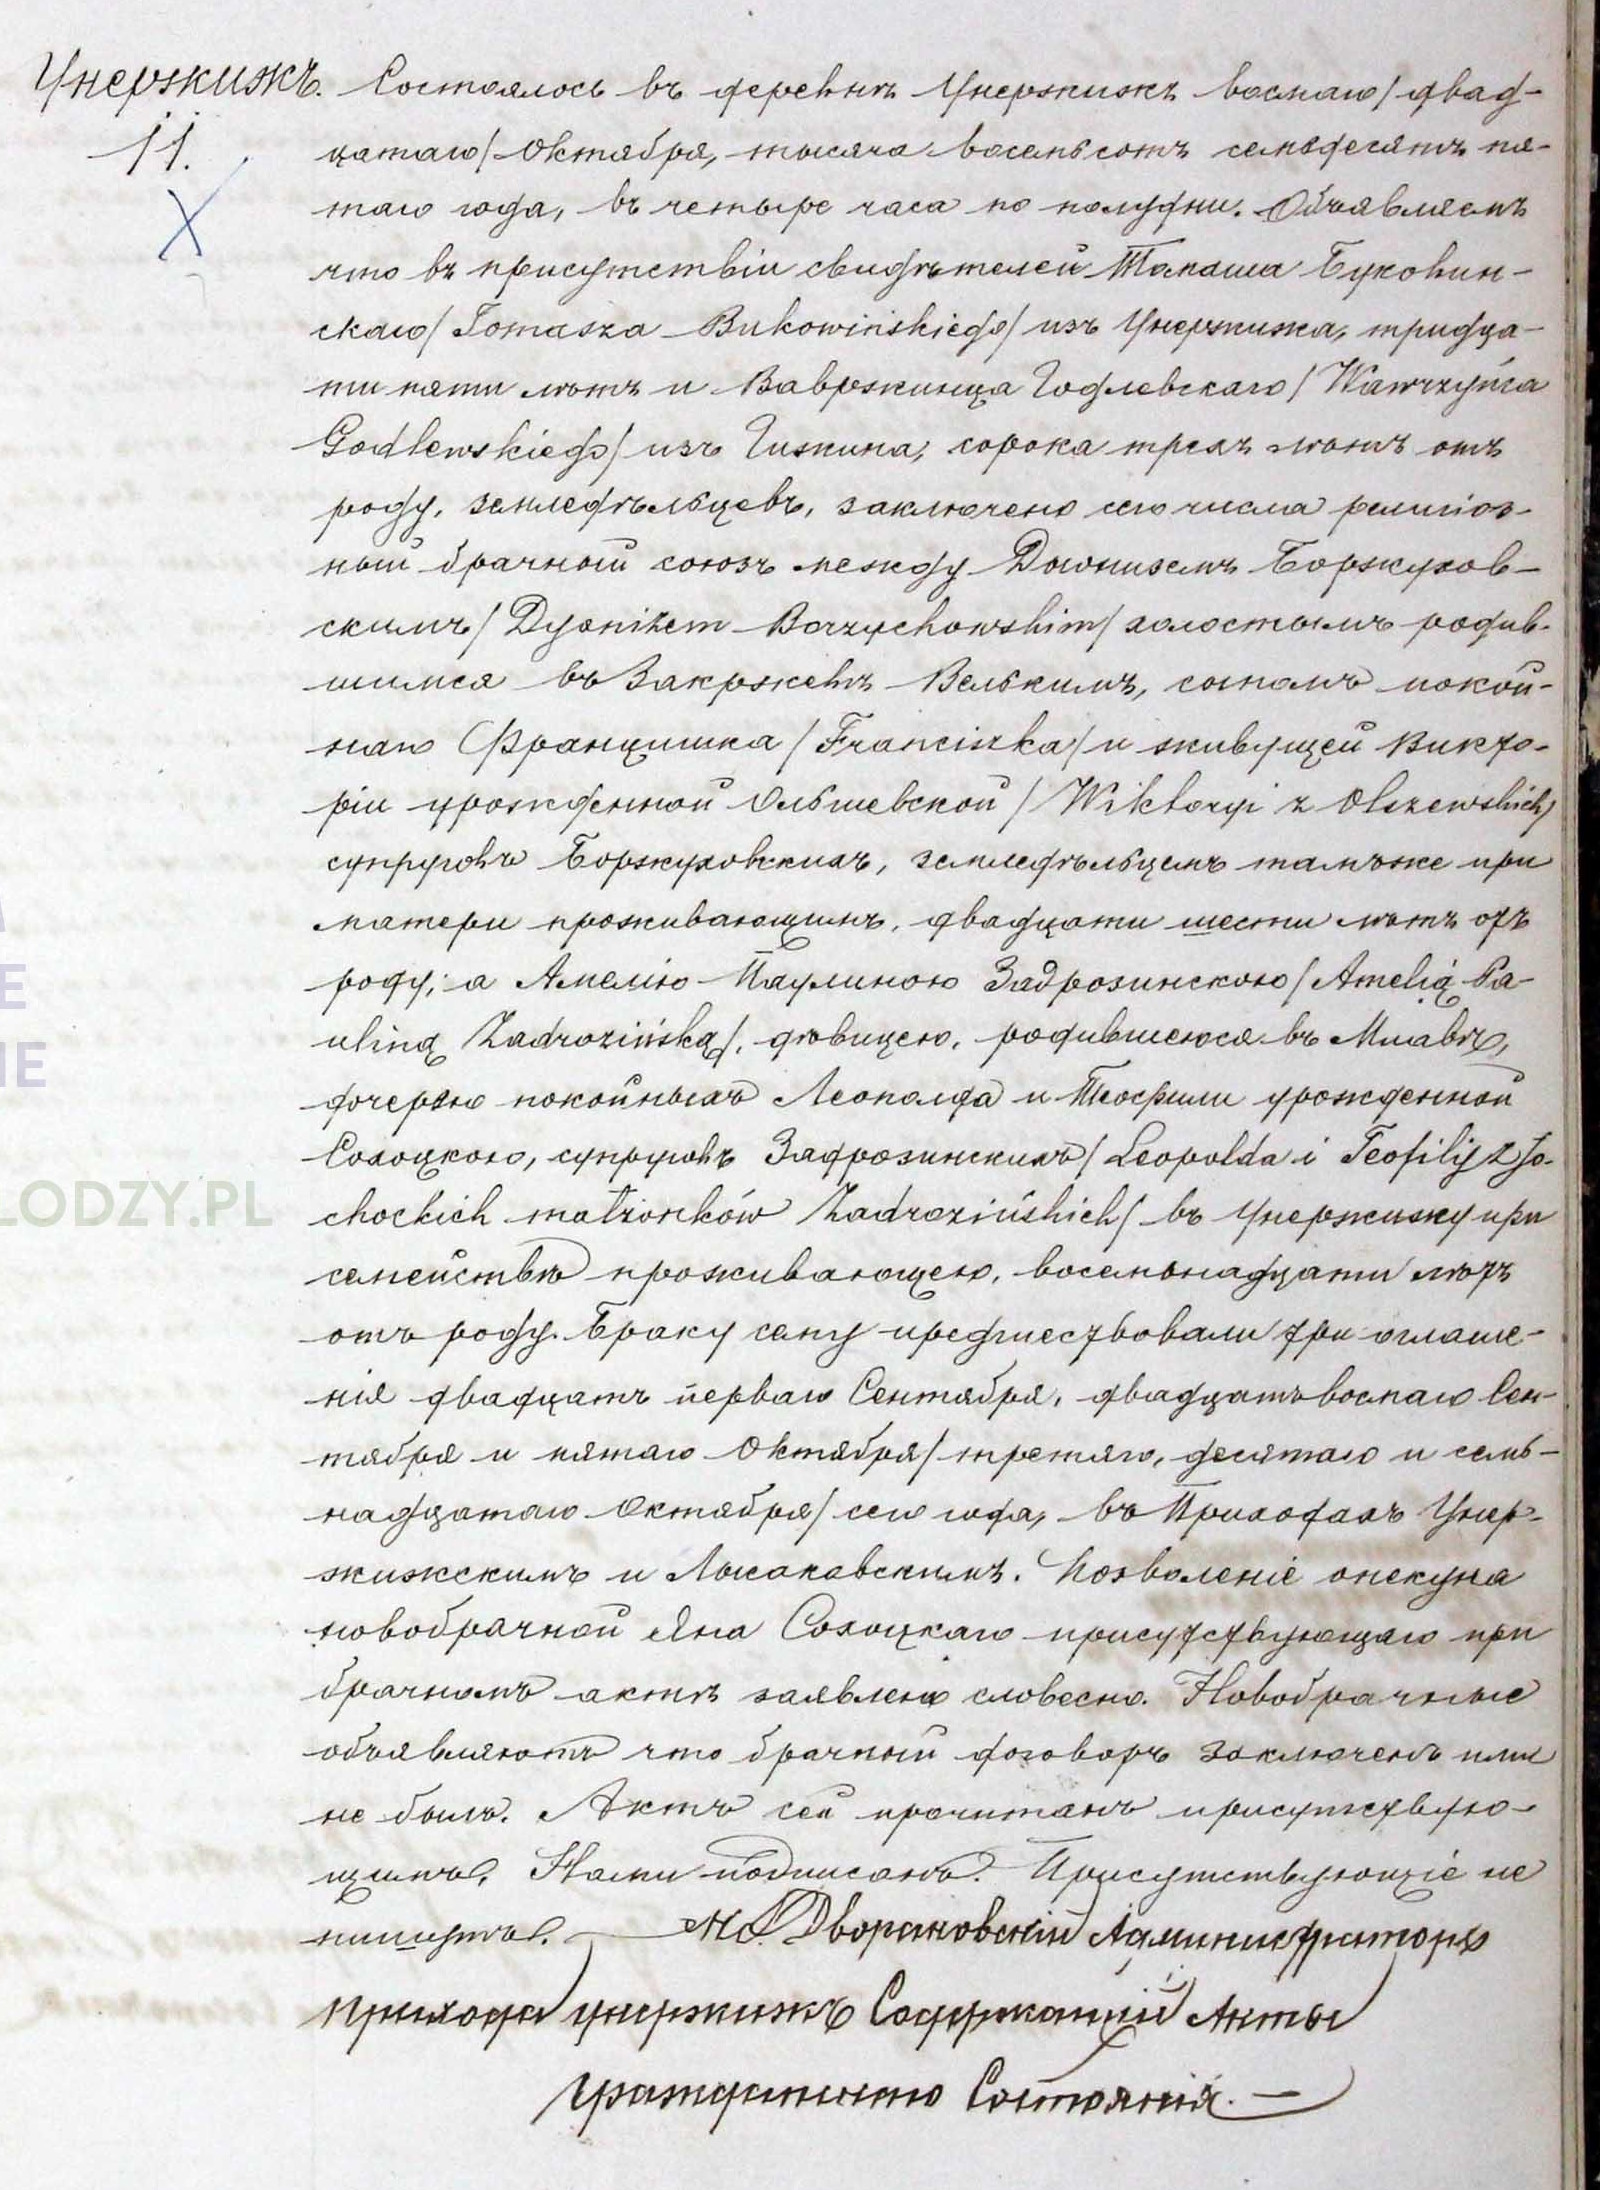 Унержижъ. Состоялось въ деревнѣ Унержижъ восмаго/двад-
11. цатаго/Октября, тысяча восемьсотъ семьдесятъ пя-
X таго года, въ четыре часа по полудни. Объявляемъ
что въ присутствіи свидѣтелей Томаша Буковин-
скаго/Tomasza Bukowińskiego/изъ Унержижа, тридца-
ти пяти лѣтъ и Вавржинца Годлевскаго/Wawrzyńca
Godlewskiego/изъ Гижина, сорока трехъ лѣтъ отъ
роду, земледѣльцевъ, заключено сего числа религіоз-
ный брачный союзъ между Діониземъ Боржухов-
скимъ/Dyonizem Borzuchowskim/холостымъ родив-
шимся въ Закржевѣ Велькимъ, сыномъ покой-
наго Францишка/Franciszka/и живущей Викто-
ріи урожденной Ольшевской/Wiktoryi z Olszewskich/
супруговъ Боржуховскихъ, земледѣльцемъ тамъже при
матери проживающимъ, двадцати шести лѣтъ отъ
роду; а Амелію Паулиною Задрозинскою/Amelią Pa-
uliną Zadrozińską/, дѣвицею, родившеюся въ Млавѣ,
дочерью покойныхъ Леопольда и Теофили урожденной
Сохоцкою, супруговъ Задрозинскихъ/Leopolda i Teofili z So-
chockich małżonków Zadrozińskich/въ Унержижу при
семействѣ проживающею, восемьнадцати лѣтъ
отъ роду. Браку сему предшествовали три оглаше-
нія двадцать перваго Сентября, двадцать восмаго Сен-
тября и пятаго Октября/третяго, десятаго и семь-
надцатаго Октября/сего года, въ Приходахъ Унер-
жижскимъ и Лысаковскимъ. Позволеніе опекуна
новобрачной Яна Сохоцкаго присутствующаго при
брачномъ актѣ заявлено словесно. Новобрачные
объявляютъ что брачный договоръ заключенъ ими
не былъ. Актъ сей прочитанъ присутствую-
щимъ, Нами подписанъ. Присутствующіе не
пишутъ. Дворановскій Администраторъ
прихода Унержижъ Содержащій Акты
гражданскаго Состоянія.
LODZY.PL